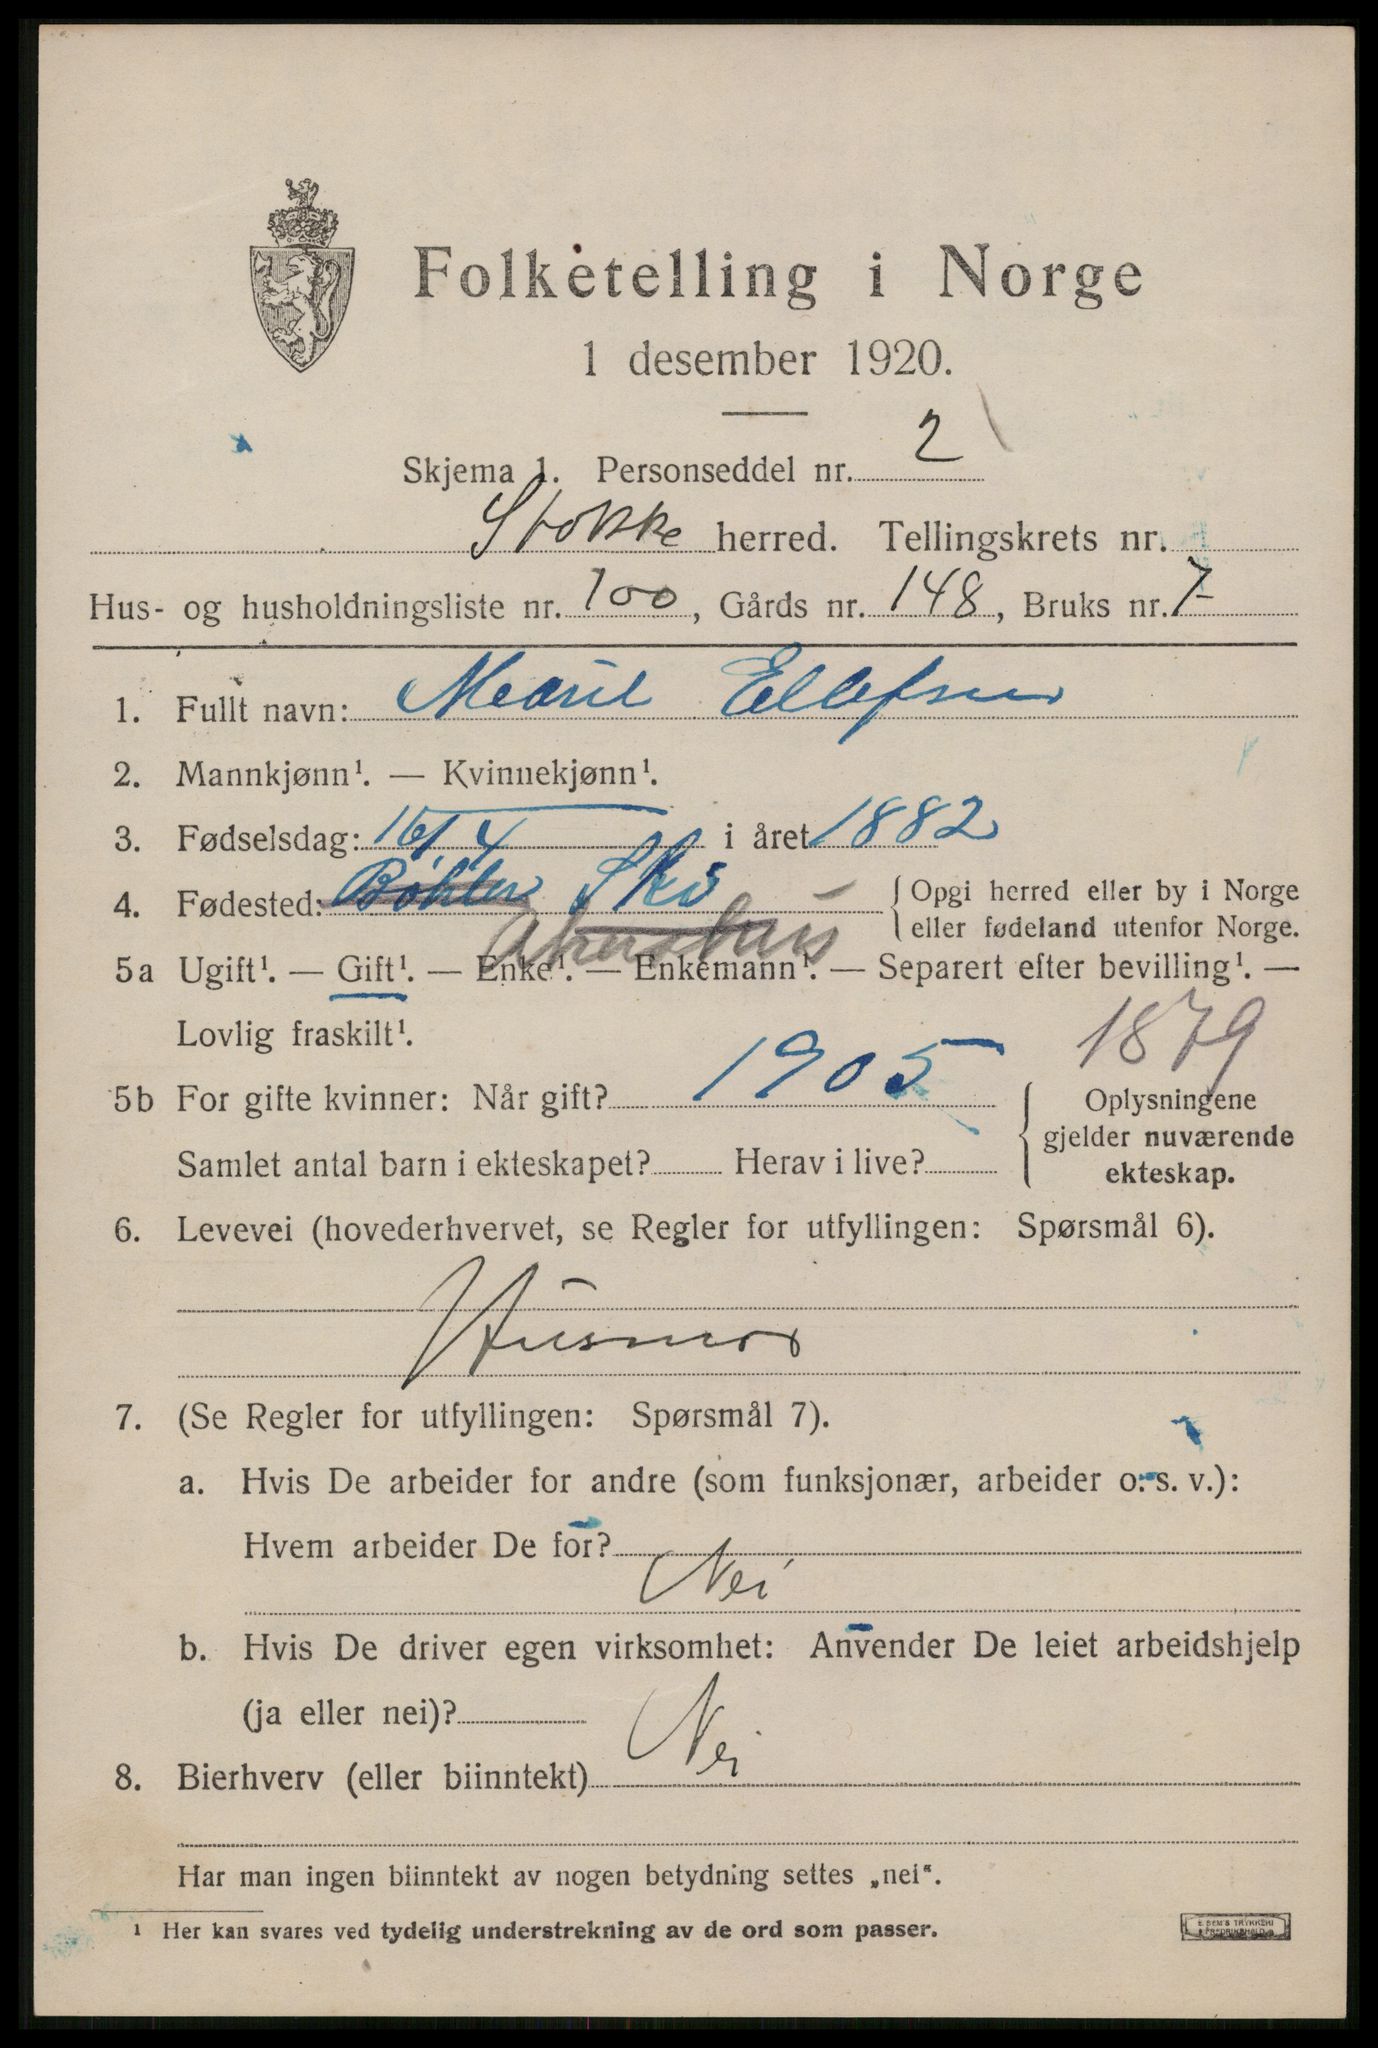 Folketelling i Norge
1 desember 1920.
Skjema 1. Personseddel nr. 2
Stokke herred. Tellingskrets nr.
Hus- og husholdningsliste nr. 100, Gårds nr. 148, Bruks nr. 7
1. Fullt navn: Ellefsen
2. Mannkjønn¹. — Kvinnekjønn¹.
3. Fødselsdag: 16/4 i året 1882
4. Fødested: Ski { Opgi herred eller by i Norge
{ eller fødeland utenfor Norge.
Akershus
5a Ugift¹. — Gift¹. — Enke¹. — Enkemann¹. — Separert efter bevilling¹. —
Lovlig fraskilt¹.
1879
5b For gifte kvinner: Når gift? 1905 { Oplysningene
gjelder nuværende
Samlet antal barn i ekteskapet? Herav i live?
ekteskap.
6. Levevei (hovederhvervet, se Regler for utfyllingen: Spørsmål 6).
Husmor
7. (Se Regler for utfyllingen: Spørsmål 7).
a. Hvis De arbeider for andre (som funksjonær, arbeider o. s. v.):
Hvem arbeider De for?
Nei
b. Hvis De driver egen virksomhet: Anvender De leiet arbeidshjelp
(ja eller nei)?
8. Bierhverv (eller biinntekt) Nei
Har man ingen biinntekt av nogen betydning settes „nei“.
¹ Her kan svares ved tydelig understrekning av de ord som passer.
E. SEM'S TRYKKERI
FREDRIKSHALD